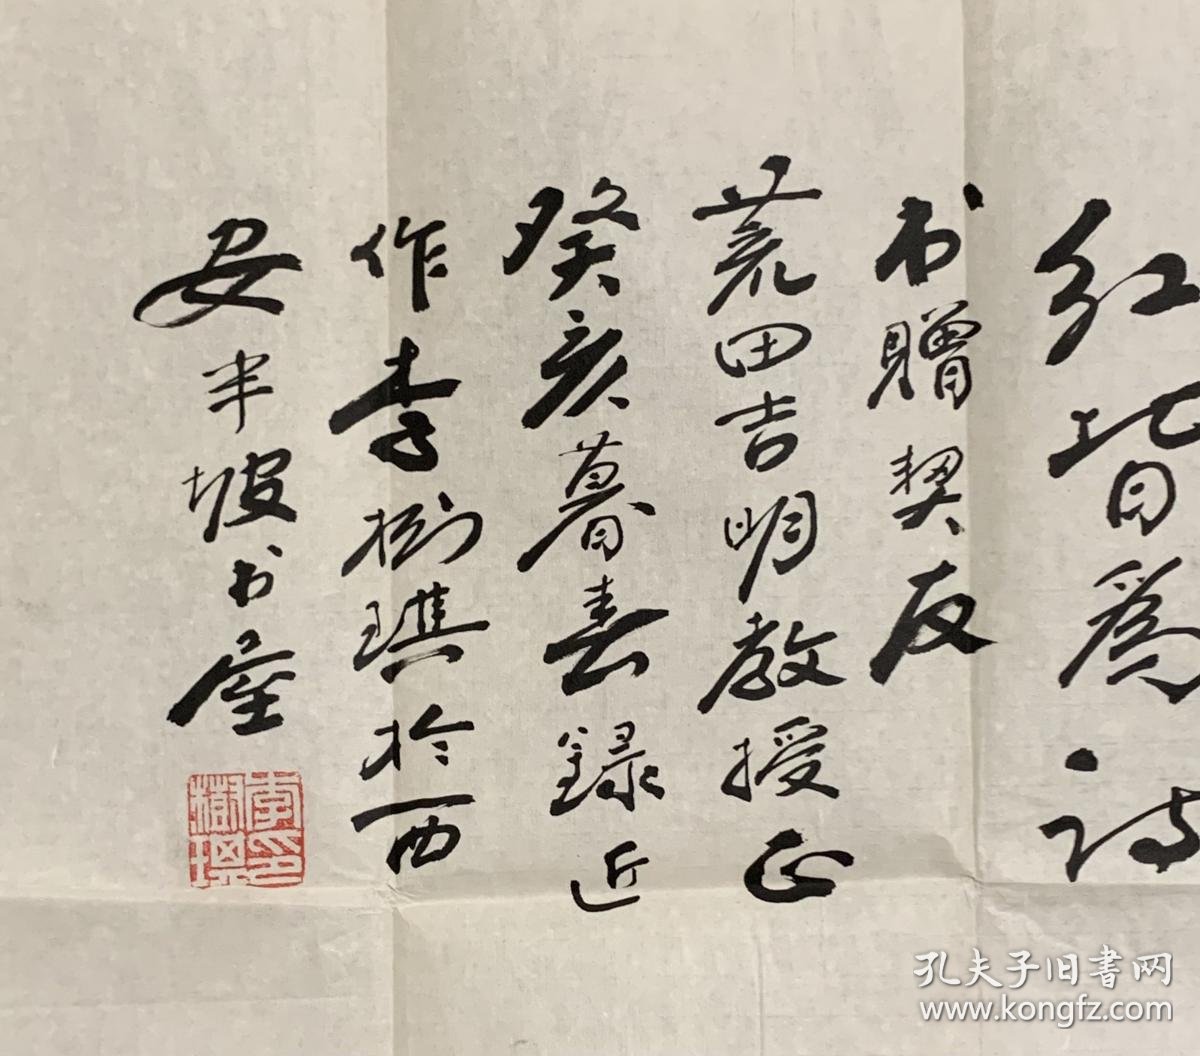 红皆為诗
书贈契友
荒田吉明教授正
癸亥暮春録近
作李樹琪於西
安半坡书屋
李印樹琪
孔夫子旧書网
www.kongfz.com